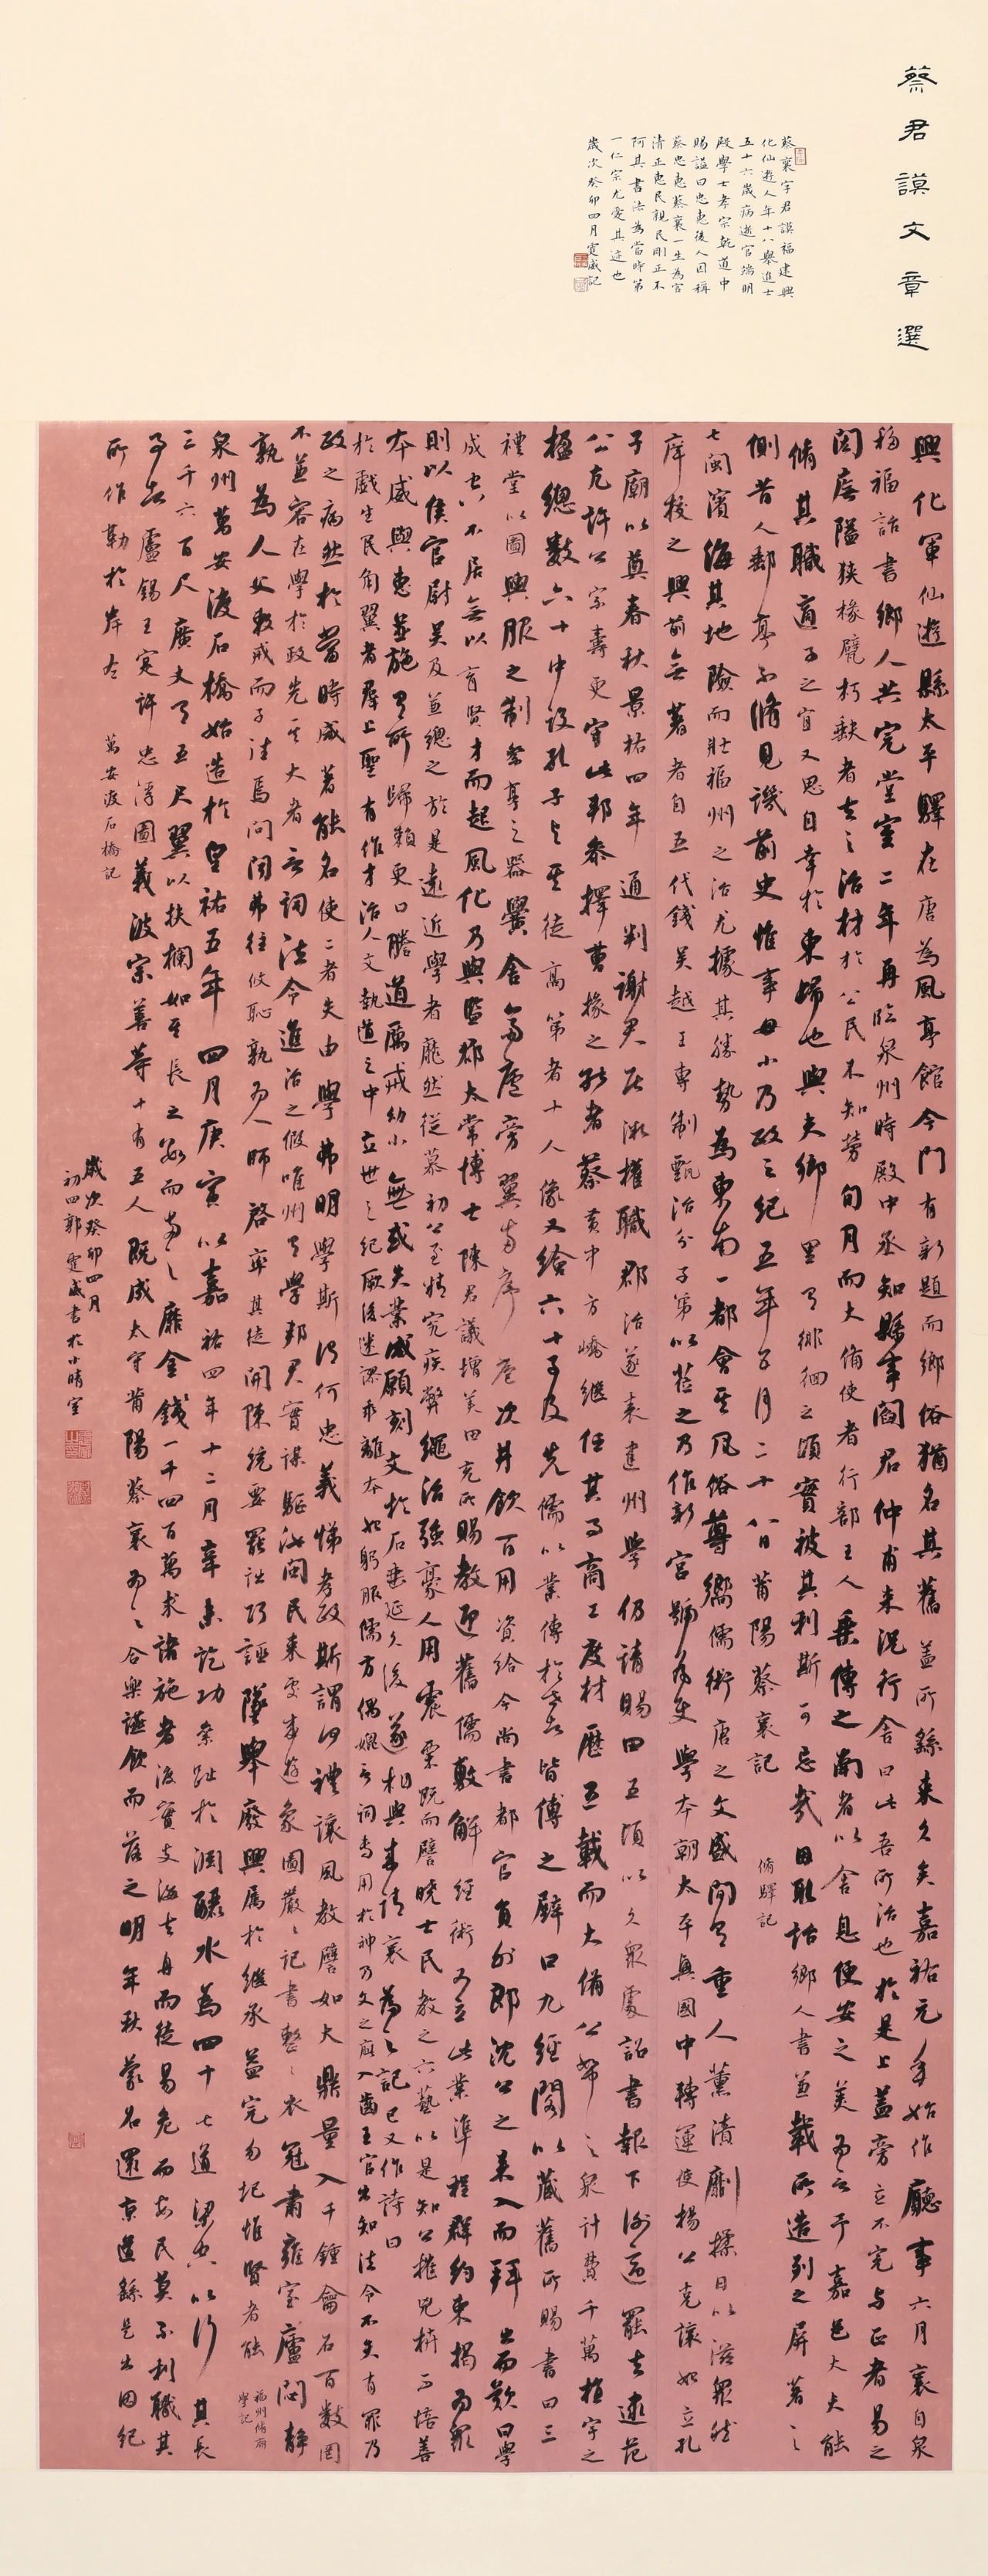 蔡君謨文章選
蔡襄字君謨福建興
化仙遊人年十八舉進士
五十六歲病逝官端明
殿學士孝宗乾道中
賜謚曰忠惠後人因稱
蔡忠惠蔡襄一生為官
清正惠民親民剛正不
阿其書法為當時第
一仁宗尤愛其迹也
歲次癸卯四月霆威記
興化軍仙遊縣太平驛在唐為風亭館今門有新題而鄉俗猶名其舊蓋所繇來久矣嘉祐元年始作廳事六月襄自泉
移福詣書鄉人共完堂室二年再臨泉州時殿中丞知縣事閻君仲甫來況行舍曰此吾所治也於是上蓋旁立不完与正者易之
閎居隘狹椽甓朽缺者去之治材於公民不知勞旬月而大備使者行部王人乘傳之南者以舍息便安之美而言于嘉邑大夫能
脩其職適予之宜又思自幸於東婦也與夫鄉里有徘徊之頌實被其利斯可忘哉因取詒鄉人書並載所造列之屏著之
側昔人郵亭不脩見譏前史惟事毋小乃政之紀五年子月二十八日莆陽蔡襄記 脩驛記
七閩濱海其地險而壯福州之治尤據其勝勢為東南一都會其風俗尊嚮儒術唐之文盛間有重人薰漬劘揉日以滋眾然
庠校之興前無著者自五代錢吳越王專制甄治分子第以蒞之乃作新宮號為使學本朝太平興國中轉運使楊公克讓始立孔
子廟以奠春秋景祐四年通判謝君民微權職郡治遂表建州學仍請賜田五頃以久眾處詔書報下仰適罷去逮范
公亢許公宗壽更守此邦叅擇曹掾之能者蔡黄中方嶠繼任其事高工度材歷五載而大備公帑之泉計費千萬楹宇之
楹總數六十中設孔子与其徒高第者十人像又繪六十子及先儒以業傳於世者皆傅之壁曰九經閣以藏舊所賜書曰三
禮堂以圖輿服之制祭享之器黌舍齋廬旁翼兩序庖次井飲百用資給今尚書都官員外郎沈公之來入而拜出而歎曰學
成也不居無以育賢才而起風化乃與監郡太常博士陳君議增美田充所賜教迎舊儒敷解經術又立此業準程群約束揭而眾
則以侯官尉吳及並總之於是遠近學者龐然從慕初公至精究疾弊繩治強豪人用震栗既而譬曉士民教之六藝以是知公摧兇枿而培善
本威與惠並施有所歸賴更曰勝道厲戒幼小無或失業咸願刻文於石垂延久後遂相與來請襄為之記已又作詩曰
於戲生民角翼者群上聖有作才治人文執道之中立世之紀厥後迷謬乖離本始躬服儒方偶媲言詞専用於神乃文之廟入齒王官出知法令不矢有罪乃
政之病然於當時咸著能名使二者失由學弗明學斯得何忠義悌孝政斯謂何禮讓風教譬如大鼎量入千鍾龠石百數罔
不並容在學於政先其大者言詞法令進治之假唯州有學邦君實謀驅汝問民來雯來遊象圖嚴嚴記書整整衣冠肅雍室廬閟靜
孰為人父教戒而子法焉問閱弗往攸恥孰為人師啓率其徒開陳統要罷詘巧誣墜舉廢興屬於繼承益完勿圮惟賢者能 福州脩廟學記
泉州萬安渡石橋始造於皇祐五年四月庚寅以嘉祐四年十二月辛未訖功絫趾於淵釃水為四十七道梁空以行其長
三千六百尺廣丈有五尺翼以扶欄如其長之數而兩之靡金錢一千四百萬求諸施者渡實支海去舟而徒易危而安民莫不利職其
事者盧錫王寔許忠浮圖義波宗善等十有五人既成太守莆陽蔡襄為之合樂讌飲而落之明年秋蒙召還京道繇是出因紀
所作勒於岸左 萬安渡石橋記
歲次癸卯四月
初四郭霆威書於小晴室